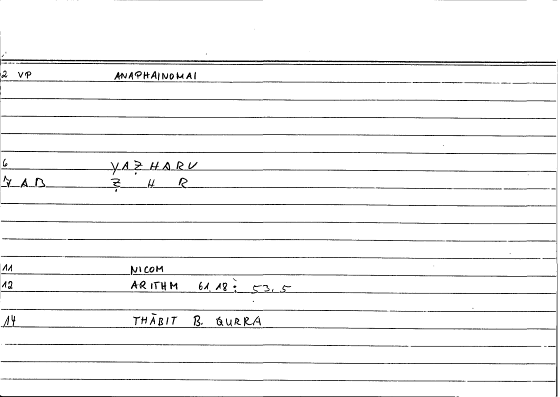 2 VP ANAPHAINOMAI
6 YAẒHARU
7 AB Ẓ H R
11 NICOM
12 ARITHM 61.18: 53.5
14 THĀBIT B. QURRA